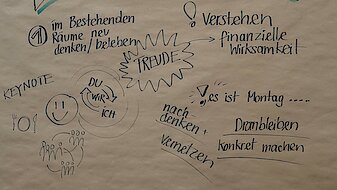 ① im Bestehenden
Räume neu
denken/beleben
! Verstehen
finanzielle
Wirksamkeit
FREUDE
KEYNOTE
DU
WIR
ICH
! es ist Montag ....
nach
denken +
vernetzen
Dranbleiben
konkret machen